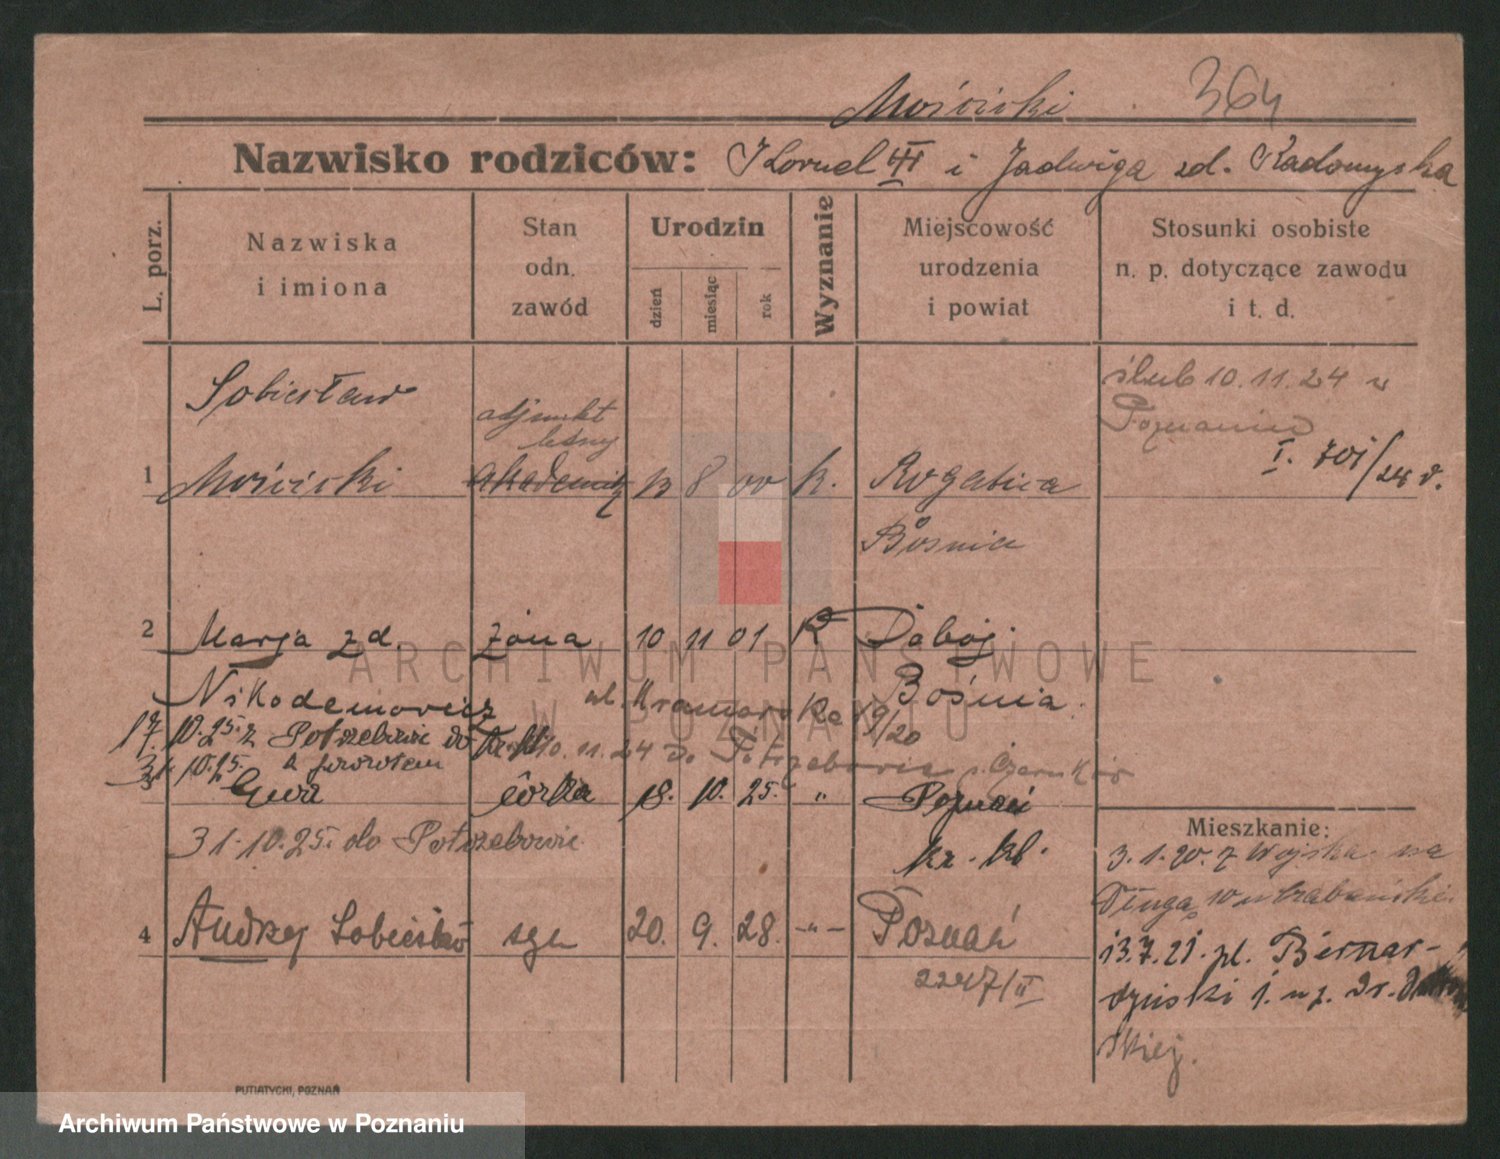 Mościcki 364
Nazwisko rodziców: Kornel III i Jadwiga zd. Radomyska
L. porz.
Nazwiska
i imiona
Stan
odn.
zawód
Urodzin
dzień
miesiąc
rok
Wyznanie
Miejscowość
urodzenia
i powiat
Stosunki osobiste
n. p. dotyczące zawodu
i t. d.
ślub 10.11.24 w
Poznaniu
I. 701/24 d.
Sobiesław
adjunkt
leśny
1 Mościcki akademik 13 8 00 k. Rogatica
Bosnia
2 Marja zd. żona 10 11 01 R Doboj
Nikodemowicz ul. Kramarska 19/20 Bośnia
17. 10.25. z Potrzebowic do
10.11.24 do Potrzebowic p. Czarnków
31. 10.25. z powrotem
3 Ewa córka 18. 10. 25. " Poznań
31.10.25. do Potrzebowic kr. kl.
4 Andrzej syn 20. 9. 28. -"- Poznań
2247/II
Mieszkanie:
3.1.20. z Wojska na
Długa 10 u
13.7.21. pl. Bernar-
dyński 1. u p. Dr.
skiej.
PUTIATYCKI, POZNAŃ
ARCHIWUM PAŃSTWOWE
W POZNANIU
Archiwum Państwowe w Poznaniu